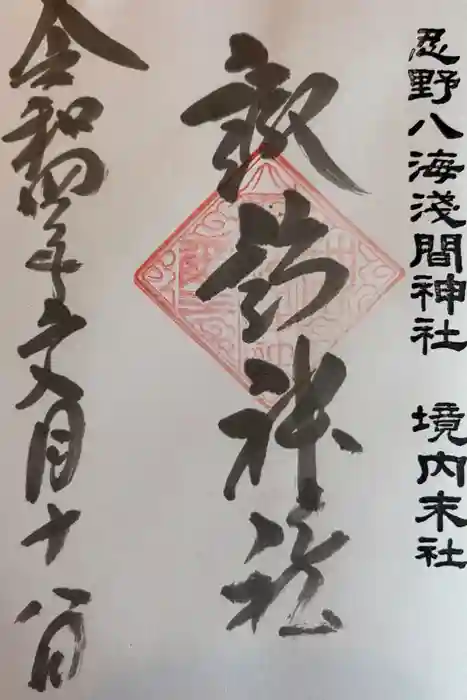 忍野八海淺間神社 境内末社
諏訪神社
令和四年文月十八日